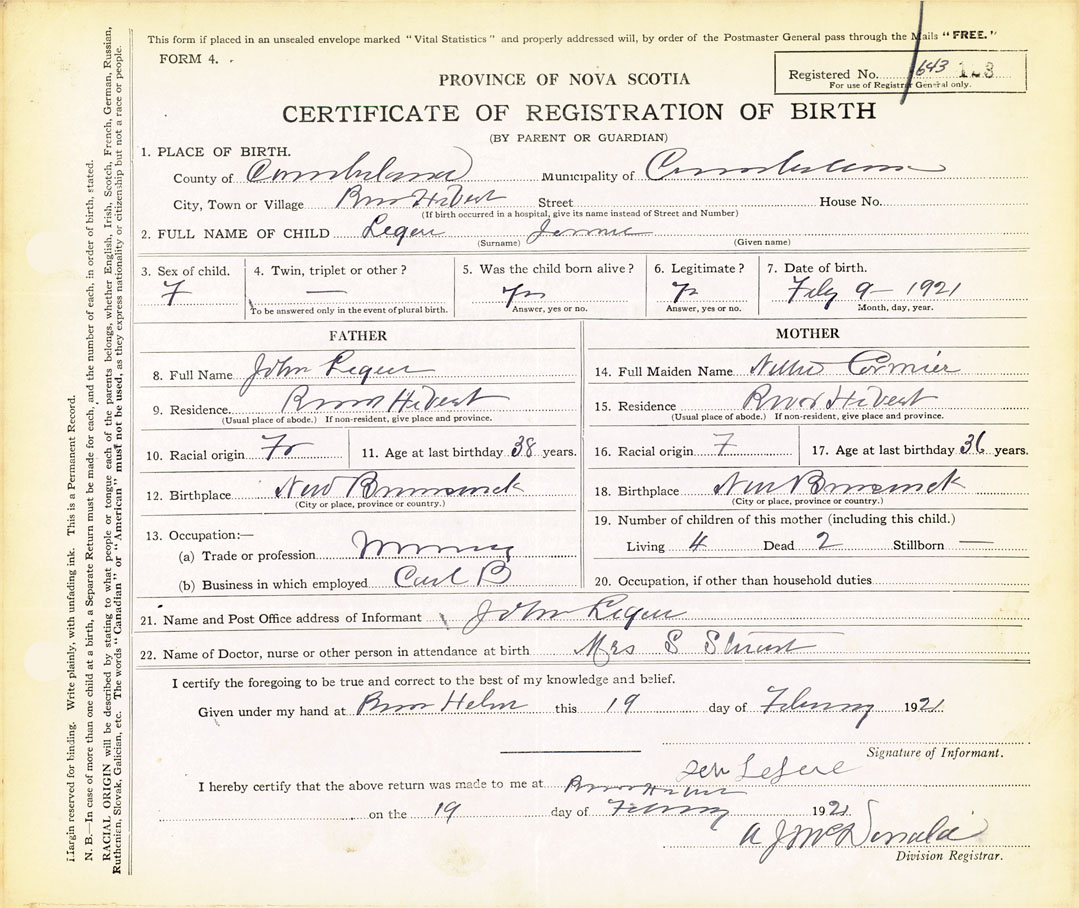 This form if placed in an unsealed envelope marked "Vital Statistics" and properly addressed will, by order of the Postmaster General pass through the Mails "FREE."
FORM 4.
Registered No. 643
For use of Registrar General only.
PROVINCE OF NOVA SCOTIA
CERTIFICATE OF REGISTRATION OF BIRTH
(BY PARENT OR GUARDIAN)
1. PLACE OF BIRTH.
County of Cumberland Municipality of Cumberland
City, Town or Village River Hebert Street House No.
(If birth occurred in a hospital, give its name instead of Street and Number)
2. FULL NAME OF CHILD Leger Jennie
(Surname) (Given name)
3. Sex of child. 4. Twin, triplet or other? 5. Was the child born alive? 6. Legitimate? 7. Date of birth.
F — yes Feby 9 – 1921
To be answered only in the event of plural birth. Answer, yes or no. Answer, yes or no. Month, day, year.
FATHER
8. Full Name John Leger
9. Residence River Hebert
(Usual place of abode.) If non-resident, give place and province.
10. Racial origin Fr 11. Age at last birthday 38 years.
12. Birthplace New Brunswick
(City or place, province or country.)
13. Occupation:—
(a) Trade or profession
(b) Business in which employed
MOTHER
14. Full Maiden Name Nellie Cormier
15. Residence River Hebert
(Usual place of abode.) If non-resident, give place and province.
16. Racial origin F 17. Age at last birthday 36 years.
18. Birthplace New Brunswick
(City or place, province or country.)
19. Number of children of this mother (including this child.)
Living 4 Dead 2 Stillborn —
20. Occupation, if other than household duties
21. Name and Post Office address of Informant John Leger
22. Name of Doctor, nurse or other person in attendance at birth Mrs S
I certify the foregoing to be true and correct to the best of my knowledge and belief.
Given under my hand at River this 19 day of February 1921
Signature of Informant.
I hereby certify that the above return was made to me at River Hebert
on the 19 day of February 1921
A J McDonald
Division Registrar.
Margin reserved for binding. Write plainly, with unfading ink. This is a Permanent Record.
N. B.—In case of more than one child at a birth, a Separate Return must be made for each, and the number of each, in order of birth, stated.
RACIAL ORIGIN will be described by stating to what people or tongue each of the parents belongs, whether English, Irish, Scotch, French, German, Russian,
Ruthenian, Slovak, Galician, etc. The words "Canadian" or "American" must not be used, as they express nationality or citizenship but not a race or people.